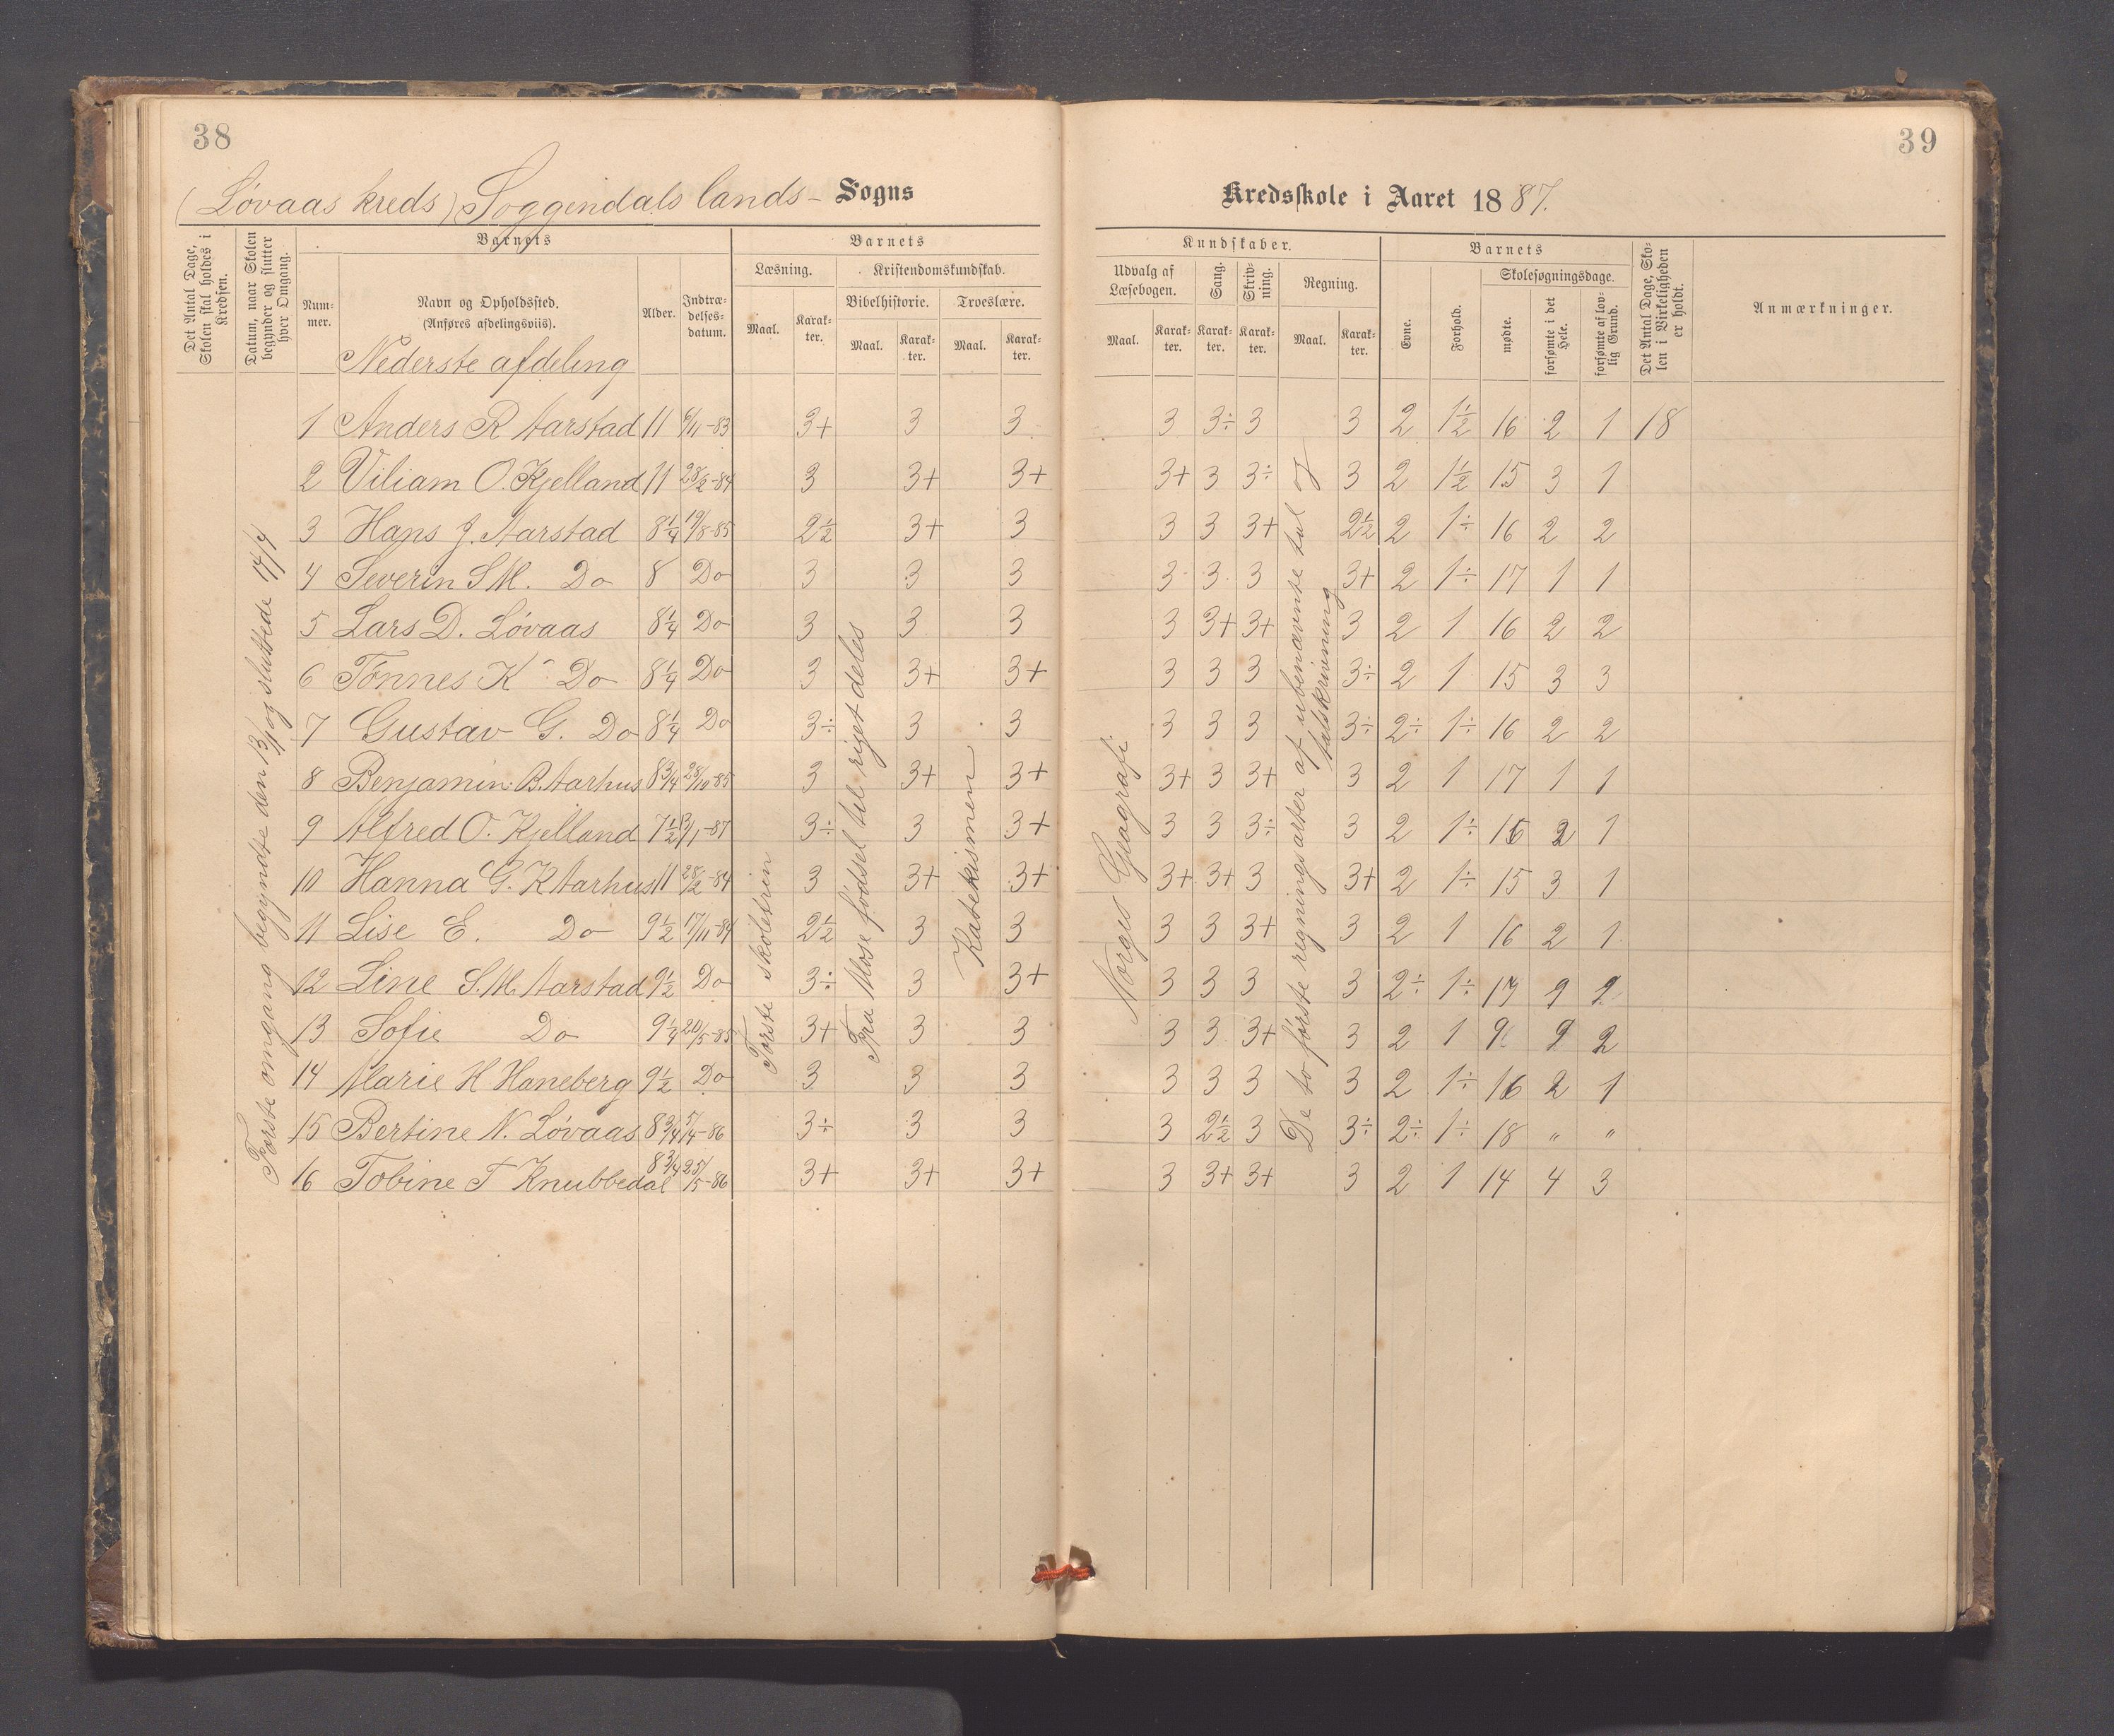 38
(Løvaas kreds) Soggendals lands- Sogns
Det Antal Dage, Skolen skal holdes i Kredsen.
Datum, naar Skolen begynder og slutter hver Omgang.
Barnets
Num-mer.
Navn og Opholdssted.
(Anføres afdelingsviis).
Alder.
Indtræ-delses-datum.
Barnets
Læsning.
Maal.
Karak-ter.
Kristendomskundskab.
Bibelhistorie.
Maal.
Karak-ter.
Troeslære.
Maal.
Karak-ter.
Nederste afdeling
1 Anders R Aarstad 11 9/11-83 3+ 3 3
2 Viliam O. Kjelland 11 28/2-84 3 3+ 3+
3 Hans J. Aarstad 8 1/4 19/8-85 2 1/2 3+ 3
4 Severin S M. Do 8 Do 3 3 3
5 Lars D. Løvaas 8 1/4 Do 3 3 3
6 Tønnes K Do 8 1/4 Do 3 3+ 3+
7 Gustav G. Do 8 1/4 Do 3÷ 3 3
8 Benjamin B. Aarhus 8 3/4 28/10-85 3 3+ 3+
9 Alfred O. Kjelland 7 1/2 13/1-87 3÷ 3 3+
10 Hanna G. K Aarhus 11 28/2-84 3 3+ 3+
11 Lise E. Do 9 1/2 17/11-84 2 1/2 3 3
12 Line S. M. Aarstad 9 1/2 Do 3÷ 3 3+
13 Sofie Do 9 1/4 20/5-85 3+ 3 3
14 Marie H Haneberg 9 1/2 Do 3 3 3
15 Bertine N. Løvaas 8 3/4 5/4-86 3÷ 3 3
16 Tobine T Knubbedal 8 3/4 25/5-86 3+ 3+ 3+
Første omgang begyndte den 13/1 og sluttede
Første skoletrin
Fra Mose fødsel til riget deles
Katekismen
39
Kredsskole i Aaret 1887.
Kundskaber.
Udvalg af Læsebogen.
Maal.
Karak-ter.
Sang.
Karak-ter.
Skriv-ning.
Karak-ter.
Regning.
Maal.
Karak-ter.
Barnets
Evne.
Forhold.
Skolesøgningsdage.
mødte.
forsømte i det Hele.
forsømte af lov-lig Grund.
Det Antal Dage, Sko-len i Virkeligheden er holdt.
Anmærkninger.
3 3÷ 3 3 2 1 1/2 16 2 1 18
3+ 3 3÷ 3 2 1 1/2 15 3 1
3 3 3+ 2 1/2 2 1÷ 16 2 2
3 3 3 3+ 2 1÷ 17 1 1
3 3+ 3+ 3 2 1 16 2 2
3 3 3 3÷ 2 1 15 3 3
3 3 3 3÷ 2÷ 1÷ 16 2 2
3+ 3 3+ 3 2 1 17 1 1
3 3 3÷ 3 2 1÷ 16 2 1
3+ 3+ 3 3+ 2 1÷ 15 3 1
3 3 3+ 3 2 1 16 2 1
3 3 3 3 2÷ 1÷ 17
3 3 3+ 3 2 1 2
3 3 3 3 2 1÷ 16 2 1
3 2 1/2 3 3÷ 2÷ 1÷ 18 " "
3 3+ 3+ 3 2 1 14 4 3
Norges Geografi
De to første regningsarter af ubenævnte tal og
talskrivning